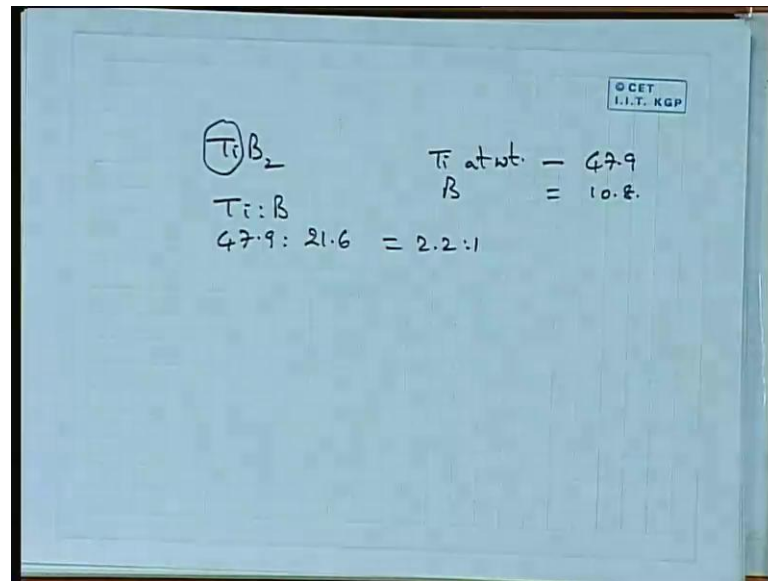 © CET
I.I.T. KGP
TiB2
Ti at wt. - 47.9
B = 10.8.
Ti : B
47.9 : 21.6 = 2.2 : 1